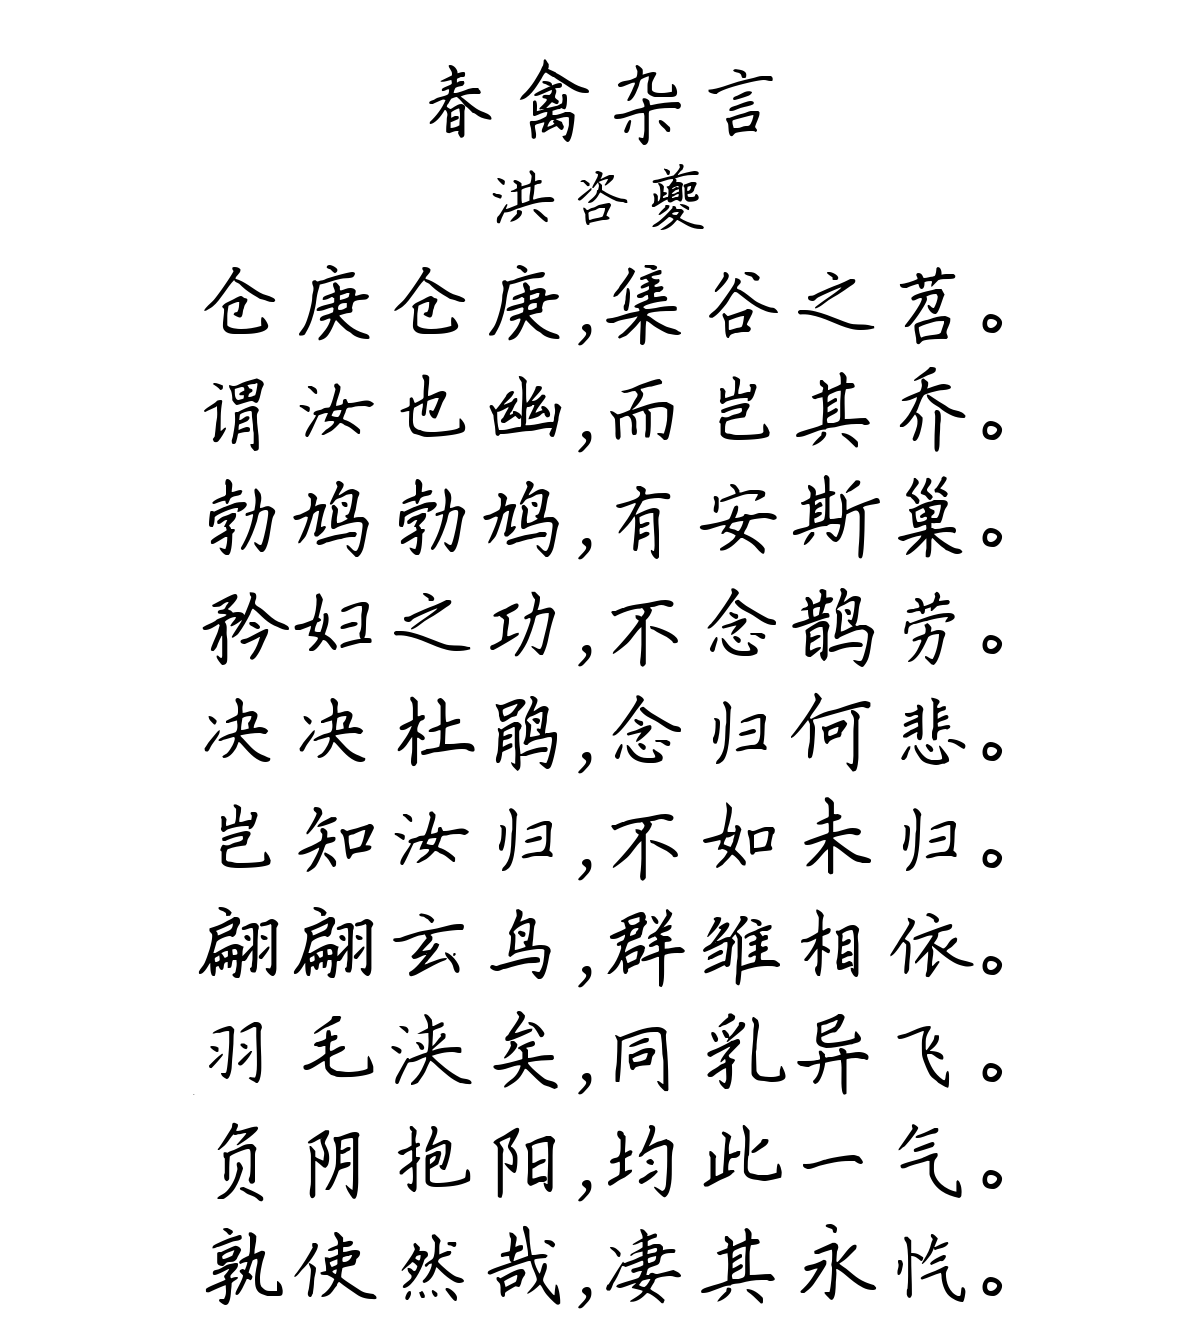 春禽杂言
洪咨夔
仓庚仓庚,集谷之苕。
谓汝也幽,而岂其乔。
勃鸠勃鸠,有安斯巢。
矜妇之功,不念鹊劳。
决决杜鹃,念归何悲。
岂知汝归,不如未归。
翩翩玄鸟,群雏相依。
羽毛浃矣,同乳异飞。
负阴抱阳,均此一气。
孰使然哉,凄其永忾。